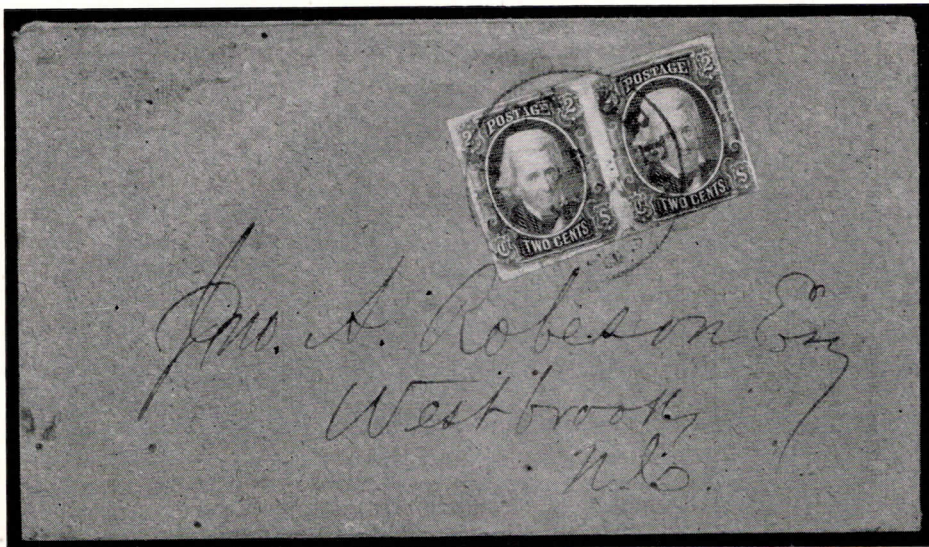 2 POSTAGE 2
TWO CENTS
C S
POSTAGE 2
TWO CENTS
C S
Jno. A. Robeson Esq
Westbrook,
N.C.